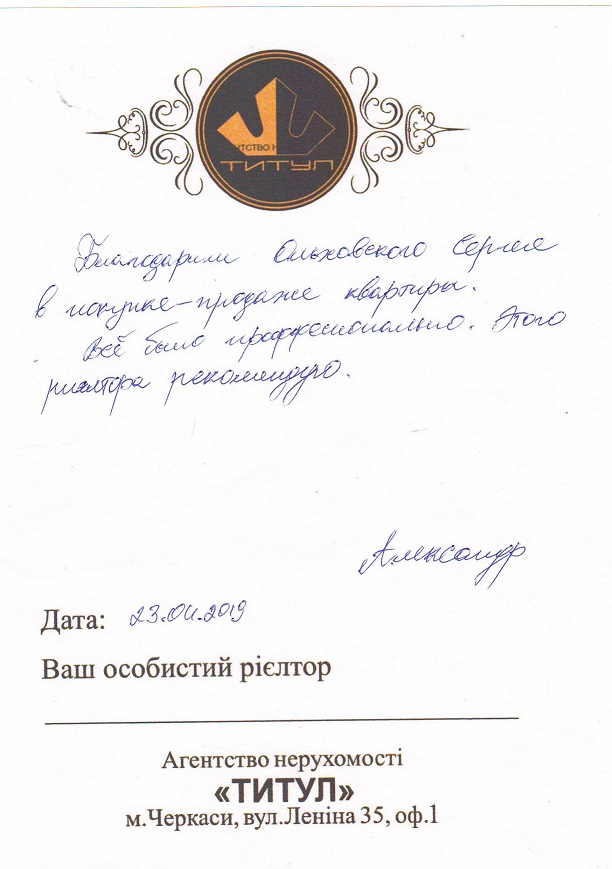 НТСТВО Н
ТИТУЛ
Благодарили Ольховского Сергея
в покупке-продаже квартиры.
Всё было профессионально. Этого
риэлтора рекомендую.
Александр
Дата: 23.04.2019
Ваш особистий рієлтор
Агентство нерухомості
«ТИТУЛ»
м.Черкаси, вул.Леніна 35, оф.1